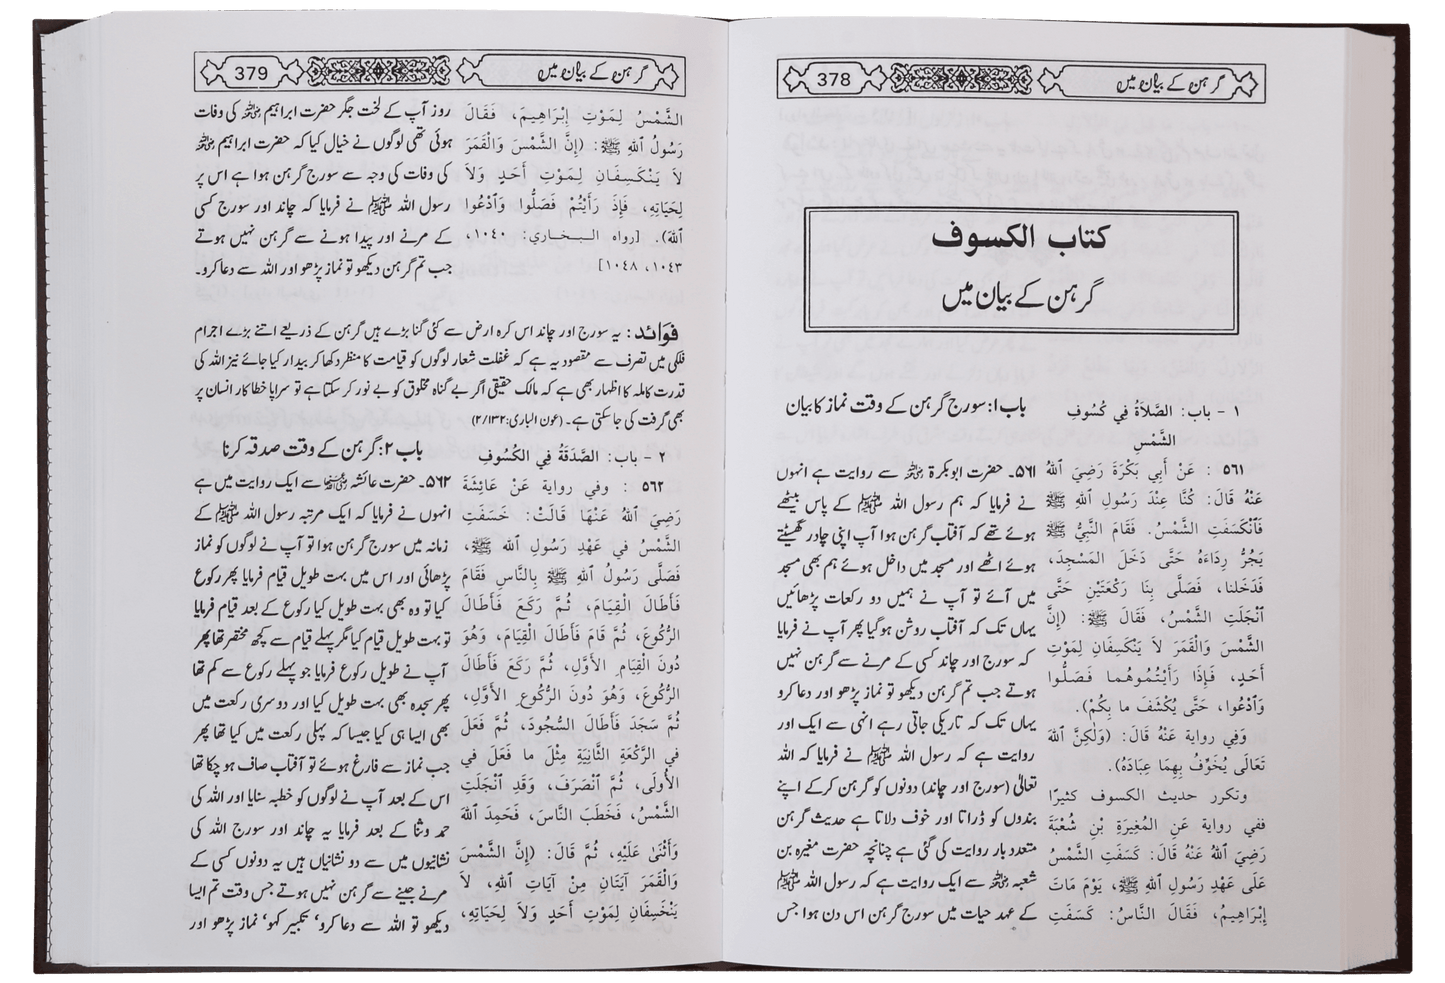 گرہن کے بیان میں
378
كتاب الكسوف
گرہن کے بیان میں
١ - باب: الصَّلاَةُ في كُسُوفِ
الشَّمْسِ
٥٦١ : عَنْ أَبِي بَكْرَةَ رَضِيَ ٱللهُ
عَنْهُ قَالَ: كُنَّا عِنْدَ رَسُولِ ٱللهِ ﷺ
فَٱنْكَسَفَتِ الشَّمْسُ. فَقَامَ النَّبِيُّ ﷺ
يَجُرُّ رِدَاءَهُ حَتَّى دَخَلَ المَسْجِدَ،
فَدَخَلنا، فَصَلَّى بِنَا رَكْعَتَيْنِ حَتَّى
ٱنْجَلَتِ الشَّمْسُ، فَقَالَ ﷺ: (إِنَّ
الشَّمْسَ وَالْقَمَرَ لاَ يَنْكَسِفَانِ لِمَوْتِ
أَحَدٍ، فَإِذَا رَأَيْتُمُوهُما فَصَلُّوا
وَٱدْعُوا، حَتَّى يُكْشَفَ ما بِكُمْ).
وَفي رواية عَنْهُ قَالَ: (وَلٰكِنَّ ٱللهَ
تَعَالَى يُخَوِّفُ بِهِمَا عِبَادَهُ).
وتكرر حديث الكسوف كثيرًا
ففي رواية عَنِ المُغِيرَةِ بْنِ شُعْبَةَ
رَضِيَ ٱللهُ عَنْهُ قَالَ: كَسَفَتِ الشَّمْسُ
عَلَى عَهْدِ رَسُولِ ٱللهِ ﷺ، يَوْمَ مَاتَ
إِبْرَاهِيمُ، فَقَالَ النَّاسُ: كَسَفَتِ
باب ۱: سورج گرہن کے وقت نماز کا بیان
۵۶۱۔ حضرت ابوبکرۃ رضی اللہ عنہ سے روایت ہے انہوں
نے فرمایا کہ ہم رسول اللہ ﷺ کے پاس بیٹھے
ہوئے تھے کہ آفتاب گرہن ہوا آپ اپنی چادر گھسیٹتے
ہوئے اٹھے اور مسجد میں داخل ہوئے ہم بھی مسجد
میں آئے تو آپ نے ہمیں دو رکعات پڑھائیں
یہاں تک کہ آفتاب روشن ہوگیا پھر آپ نے فرمایا
کہ سورج اور چاند کسی کے مرنے سے گرہن نہیں
ہوتے جب تم گرہن دیکھو تو نماز پڑھو اور دعا کرو
یہاں تک کہ تاریکی جاتی رہے انہی سے ایک اور
روایت ہے کہ رسول اللہ ﷺ نے فرمایا کہ اللہ
تعالیٰ (سورج اور چاند) دونوں کو گرہن کرکے اپنے
بندوں کو ڈراتا اور خوف دلاتا ہے حدیث گرہن
متعدد بار روایت کی گئی ہے چنانچہ حضرت مغیرہ بن
شعبہ رضی اللہ عنہ سے ایک روایت ہے کہ رسول اللہ ﷺ
کے عہد حیات میں سورج گرہن اس دن ہوا جس
گرہن کے بیان میں
379
الشَّمْسُ لِمَوْتِ إِبْرَاهِيمَ، فَقَالَ
رَسُولُ ٱللهِ ﷺ: (إِنَّ الشَّمْسَ وَالْقَمَرَ
لاَ يَنْكَسِفَانِ لِمَوْتِ أَحَدٍ وَلاَ
لِحَيَاتِهِ، فَإِذَ رَأَيْتُمْ فَصَلُّوا وَٱدْعُوا
ٱللهَ). [رواه البخاري: ١٠٤٠،
١٠٤٣، ١٠٤٨]
روز آپ کے لخت جگر حضرت ابراہیم رضی اللہ عنہ کی وفات
ہوئی تھی لوگوں نے خیال کیا کہ حضرت ابراہیم رضی اللہ عنہ
کی وفات کی وجہ سے سورج گرہن ہوا ہے اس پر
رسول اللہ ﷺ نے فرمایا کہ چاند اور سورج کسی
کے مرنے اور پیدا ہونے سے گرہن نہیں ہوتے
جب تم گرہن دیکھو تو نماز پڑھو اور اللہ سے دعا کرو۔
فوائد: یہ سورج اور چاند اس کرہ ارض سے کئی گنا بڑے ہیں گرہن کے ذریعے اتنے بڑے اجرام
فلکی میں تصرف سے مقصود یہ ہے کہ غفلت شعار لوگوں کو قیامت کا منظر دکھا کر بیدار کیا جائے نیز اللہ کی
قدرت کاملہ کا اظہار بھی ہے کہ مالک حقیقی اگر بے گناہ مخلوق کو بے نور کر سکتا ہے تو سراپا خطا کار انسان پر
بھی گرفت کی جا سکتی ہے۔ (عون الباری: ۲/۱۳۲)
٢ - باب: الصَّدَقَةُ فِي الكُسُوفِ
٥٦٢ : وفي رواية عَنْ عَائِشَةَ
رَضِيَ ٱللهُ عَنْهَا قَالَتْ: خَسَفَتِ
الشَّمْسُ في عَهْدِ رَسُولِ الله ﷺ،
فَصَلَّى رَسُولُ ٱللهِ ﷺ بِالنَّاسِ فَقَامَ
فَأَطَالَ الْقِيَامَ، ثُمَّ رَكَعَ فَأَطَالَ
الرُّكُوعَ، ثُمَّ قَامَ فَأَطَالَ الْقِيَامَ، وَهُوَ
دُونَ الْقِيَامِ الأَوَّلِ، ثُمَّ رَكَعَ فَأَطَالَ
الرُّكُوعَ، وَهُوَ دُونَ الرُّكُوعِ الأَوَّلِ،
ثُمَّ سَجَدَ فَأَطَالَ السُّجُودَ، ثُمَّ فَعَلَ
في الرَّكْعَةِ الثَّانِيَةِ مِثْلَ ما فَعَلَ في
الأُولَى، ثُمَّ ٱنْصَرَفَ، وَقَدِ ٱنْجَلَتِ
الشَّمْسُ، فَخَطَبَ النَّاسَ، فَحَمِدَ ٱللهَ
وَأَثْنَىٰ عَلَيْهِ، ثُمَّ قَالَ: (إِنَّ الشَّمْسَ
وَالْقَمَرَ آيَتَانِ مِنْ آيَاتِ ٱللهِ، لاَ
يَنْخَسِفَانِ لِمَوْتِ أَحَدٍ وَلاَ لِحَيَاتِهِ،
باب ۲: گرہن کے وقت صدقہ کرنا
۵۶۲۔ حضرت عائشہ رضی اللہ عنہا سے ایک روایت میں ہے
انہوں نے فرمایا کہ ایک مرتبہ رسول اللہ ﷺ کے
زمانہ میں سورج گرہن ہوا تو آپ نے لوگوں کو نماز
پڑھائی اور اس میں بہت طویل قیام فرمایا پھر رکوع
کیا تو وہ بھی بہت طویل کیا رکوع کے بعد قیام فرمایا
تو بہت طویل قیام کیا مگر پہلے قیام سے کچھ مختصر تھا پھر
آپ نے طویل رکوع فرمایا جو پہلے رکوع سے کم تھا
پھر سجدہ بھی بہت طویل کیا اور دوسری رکعت میں
بھی ایسا ہی کیا جیسا کہ پہلی رکعت میں کیا تھا پھر
جب نماز سے فارغ ہوئے تو آفتاب صاف ہو چکا تھا
اس کے بعد آپ نے لوگوں کو خطبہ سنایا اور اللہ کی
حمد و ثنا کے بعد فرمایا یہ چاند اور سورج اللہ کی
نشانیوں میں سے دو نشانیاں ہیں یہ دونوں کسی کے
مرنے جینے سے گرہن نہیں ہوتے جس وقت تم ایسا
دیکھو تو اللہ سے دعا کرو، تکبیر کہو، نماز پڑھو اور